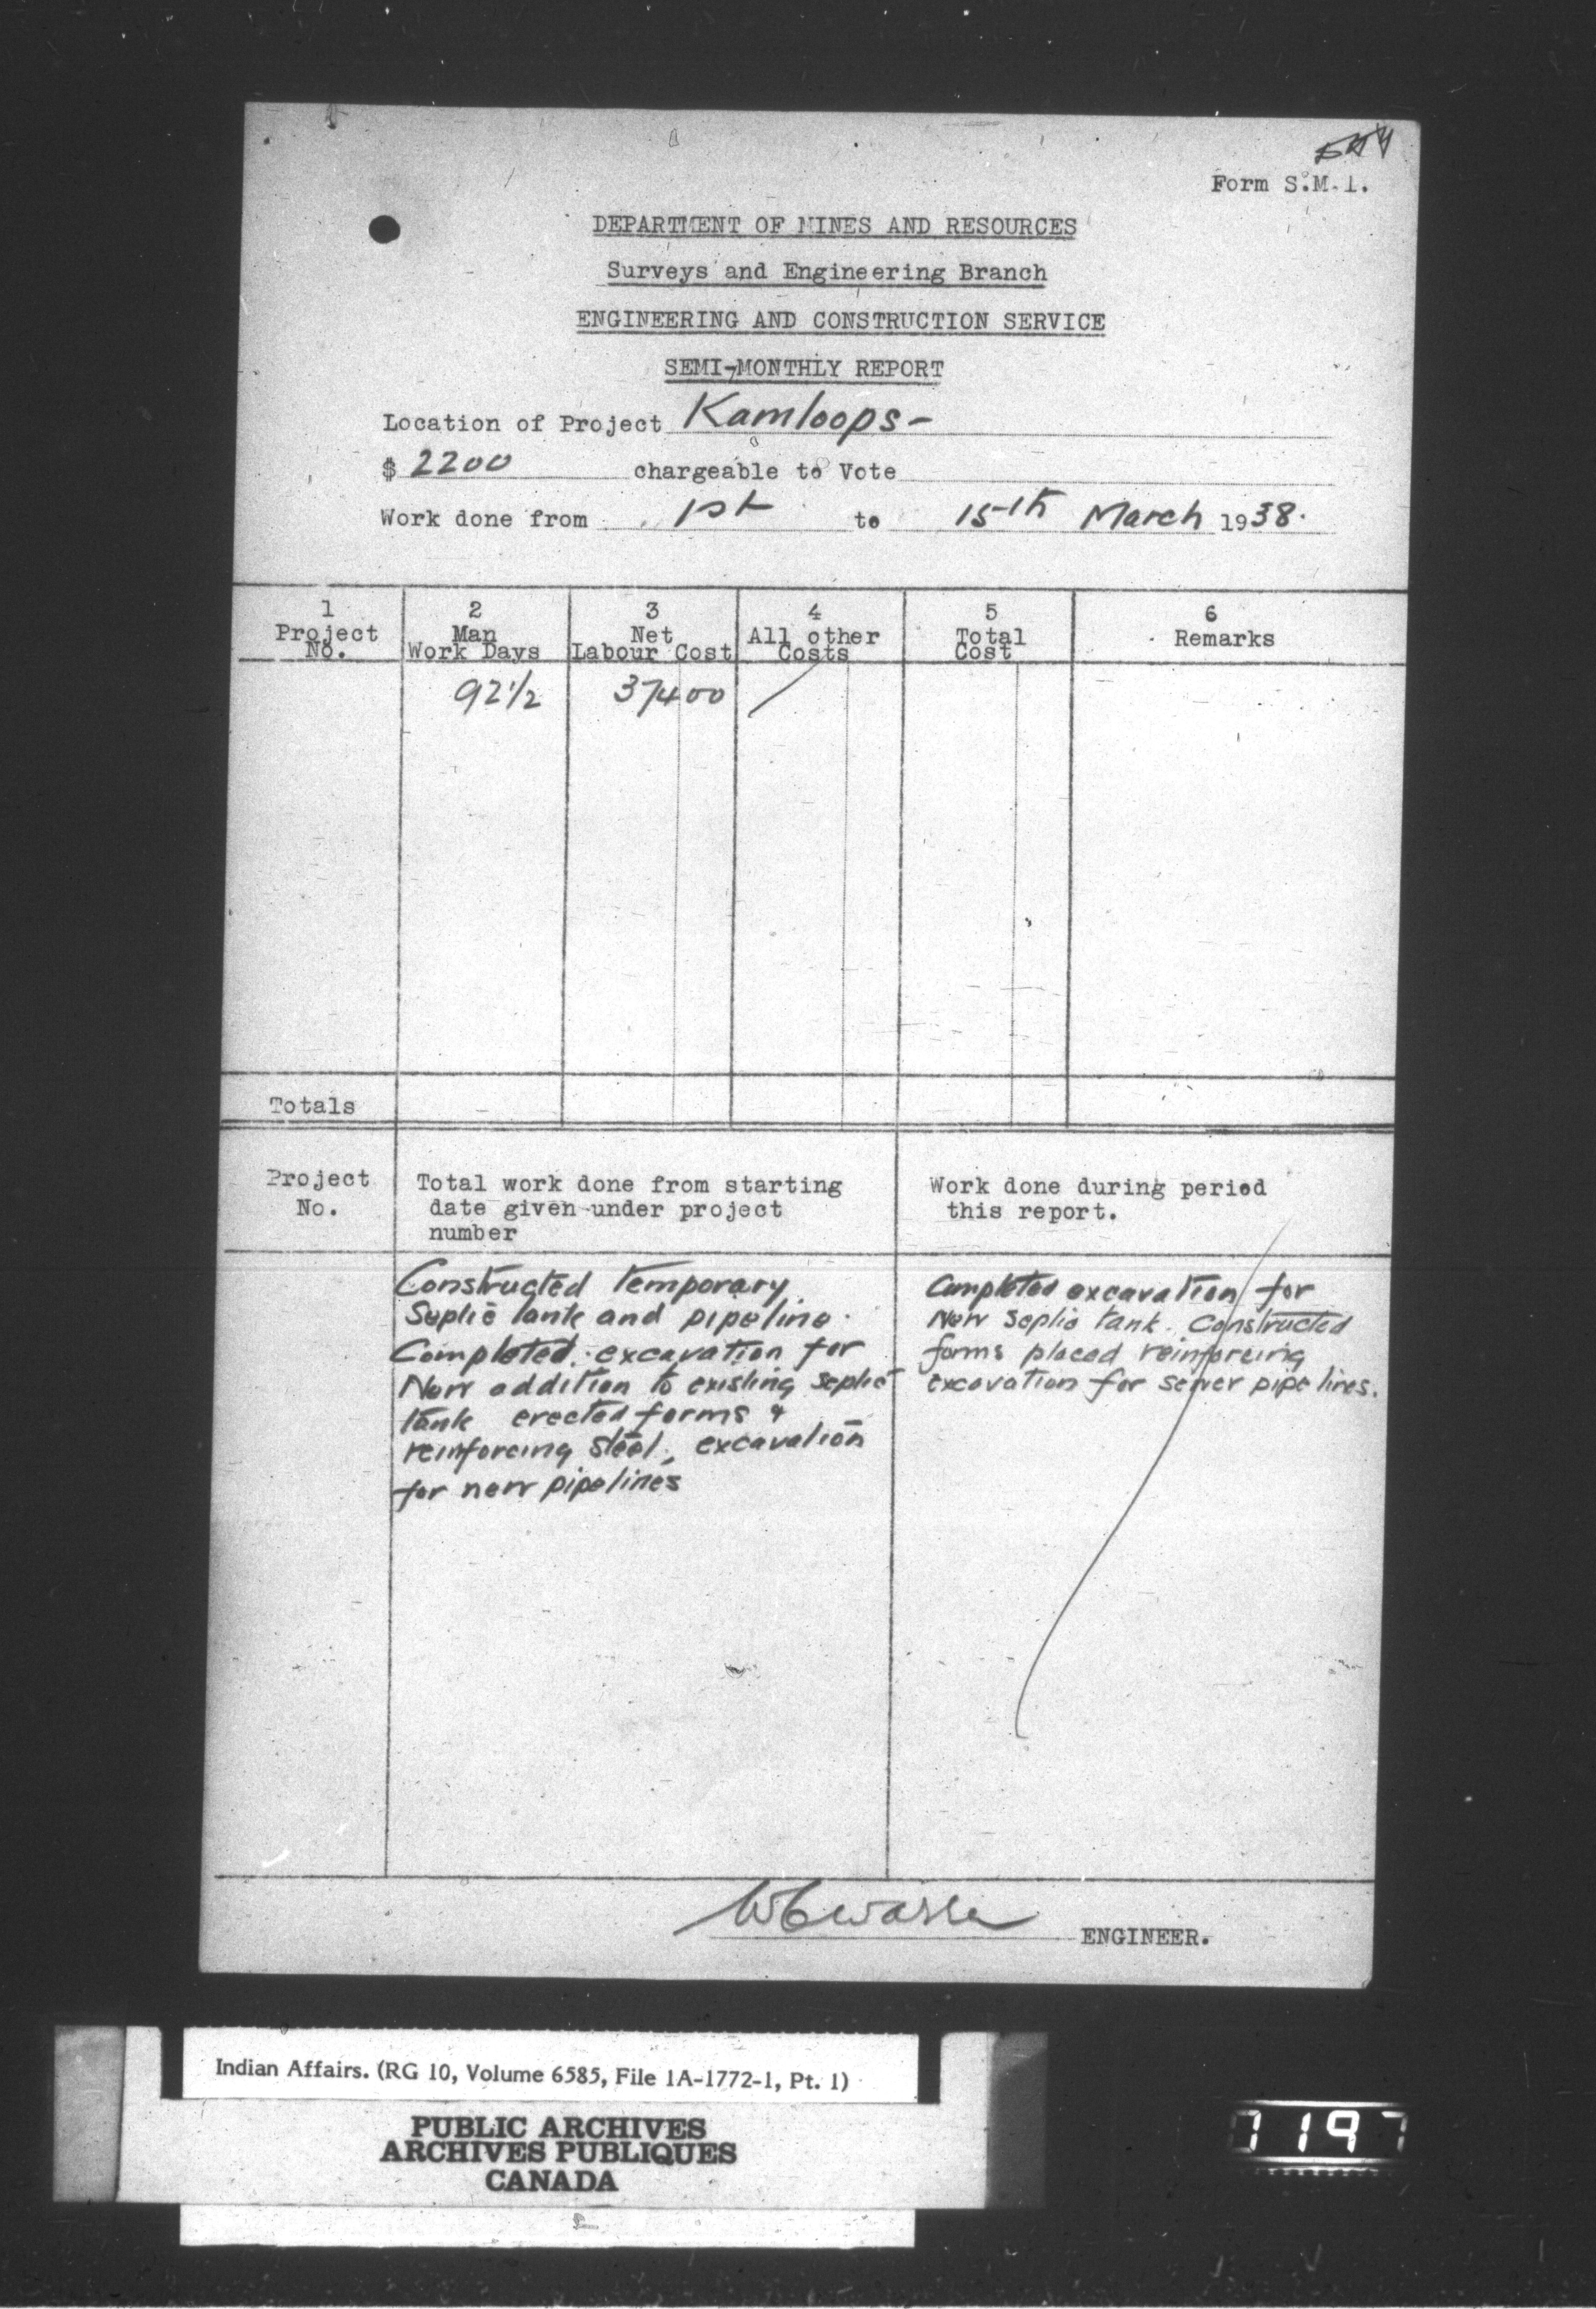 Form S.M.1.
DEPARTMENT OF MINES AND RESOURCES
Surveys and Engineering Branch
ENGINEERING AND CONSTRUCTION SERVICE
SEMI-MONTHLY REPORT
Location of Project Kamloops-
$ 2200 chargeable to Vote
Work done from 1st to 15th March 1938.
1 2 3 4 5 6
Project No. Man Work Days Net Labour Cost All other Costs Total Cost Remarks
92 1/2 374 00
Totals
Project No.
Total work done from starting
date given under project
number
Work done during period
this report.
Constructed temporary
Septic tank and pipeline.
Completed excavation for
New addition to existing septic
tank erected forms &
reinforcing steel, excavation
for new pipelines
Completed excavation for
New septic tank. Constructed
forms placed reinforcing
excavation for sewer pipe lines.
ENGINEER.
Indian Affairs. (RG 10, Volume 6585, File 1A-1772-1, Pt. 1)
PUBLIC ARCHIVES
ARCHIVES PUBLIQUES
CANADA
1197